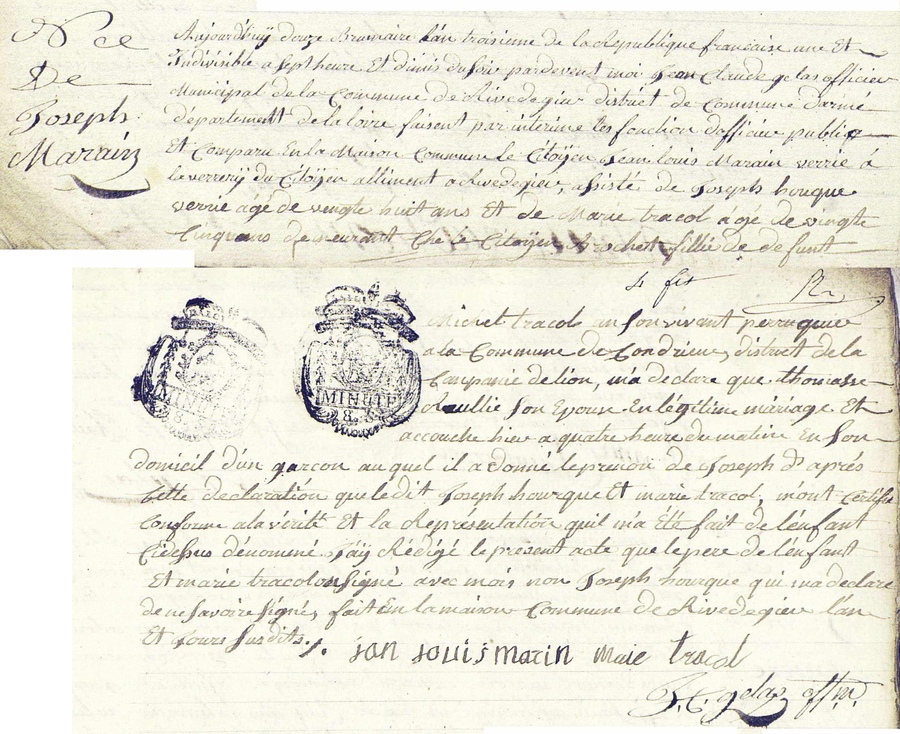 Nce
De
Joseph
Marain
Aujourd'huy douze Brumaire L'an troisieme de la Republique francaise une Et
Indivisible a sept heure Et dimis du soir pardevent moi Jean Claude gelas officier
Municipal de la Commune de Rivedegier district de Commune d'armé
département de la loire faisent par interime les fonction d'officier public
Et Comparu En la Maison Commune le Citoÿen Jean louis Marain verrié á
la verrerÿ du Citoÿen alliment a Rivedegier, assisté de Joseph hourque
verrié agé de vengte huit ans Et de Marie tracol agé de vingte
Cinq ans demeurant Che le Citoÿen Brochet fillie de defunt
4 fis
Michel tracol en son vivant perruquier
a la Commune de Condrieu, district de la
Campanie de lion, m'a declare que thomasse
Roullie son Epouse En légitime mariage Et
accouche hier a quatre heure du matin En son
domicil d'un garcon auquel il a donné le prenom de Joseph D'aprés
cette declaration que le dit Joseph hourque Et marie tracol, m'ont Certifié
Conforme a la vérité Et la Représentation qu'il m'a Été fait de l'enfant
Cidessus dénommé J'aÿ Rédigé le present acte que le pere de l'enfant
Et marie tracol on signé avec mois non Joseph hourque qui ma declare
de ne savoire signé, fait En la maison Commune de Rivedegier l'an
Et Jours susdits.
MINUTE
MINUTE
jan louis marin maie tracol
J. C. gelas offm.